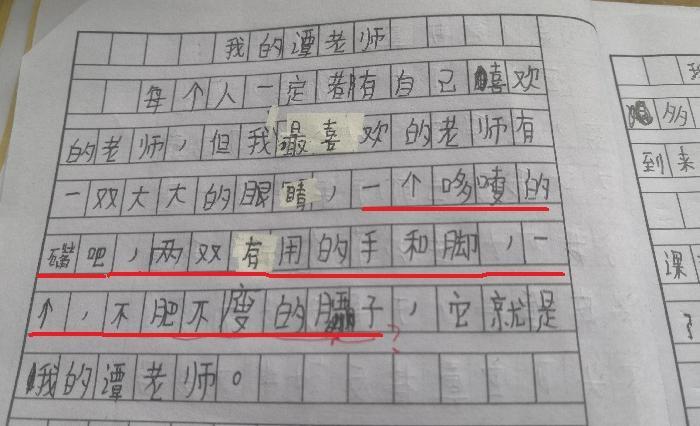 我的谭老师
每个人一定都有自己喜欢
的老师，但我最喜欢的老师有
一双大大的眼睛，一个哆嗦的
嘴吧，两双有用的手和脚，一
个，不肥不瘦的子，它就是
我的谭老师。
?
我
多
到来
课
了